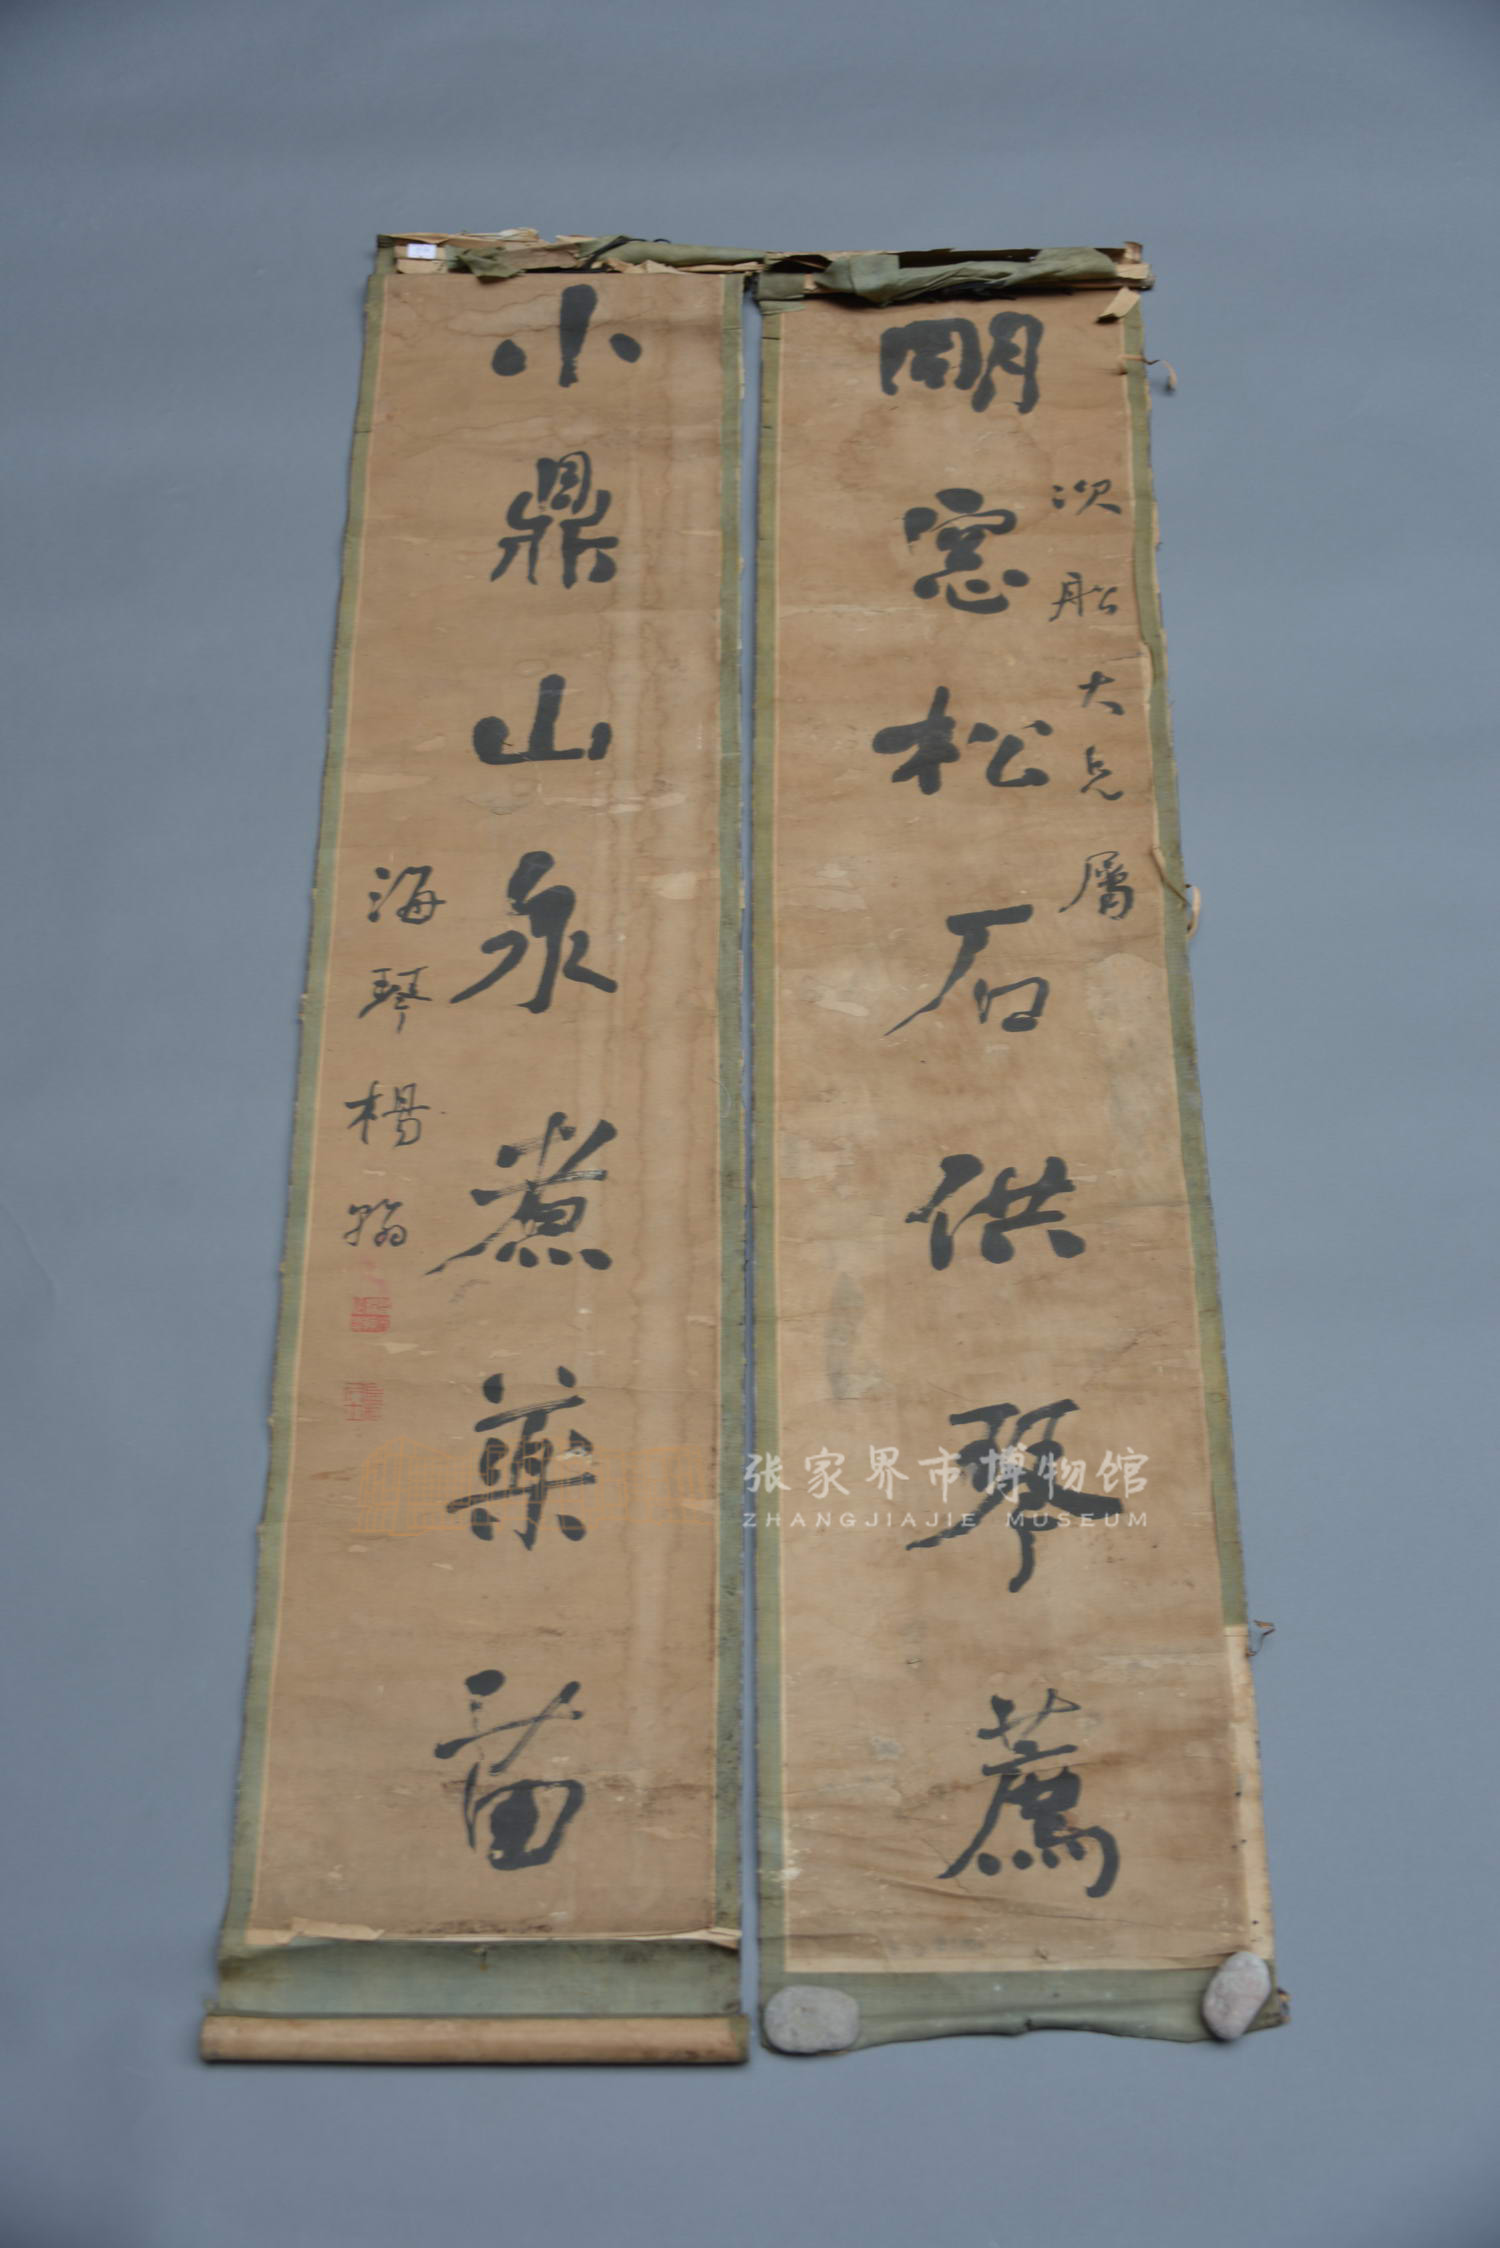 次船大兄屬
明窓松石供琴薦
小鼎山泉煮藥苗
海琴楊翰
张家界市博物馆
ZHANGJIAJIE MUSEUM